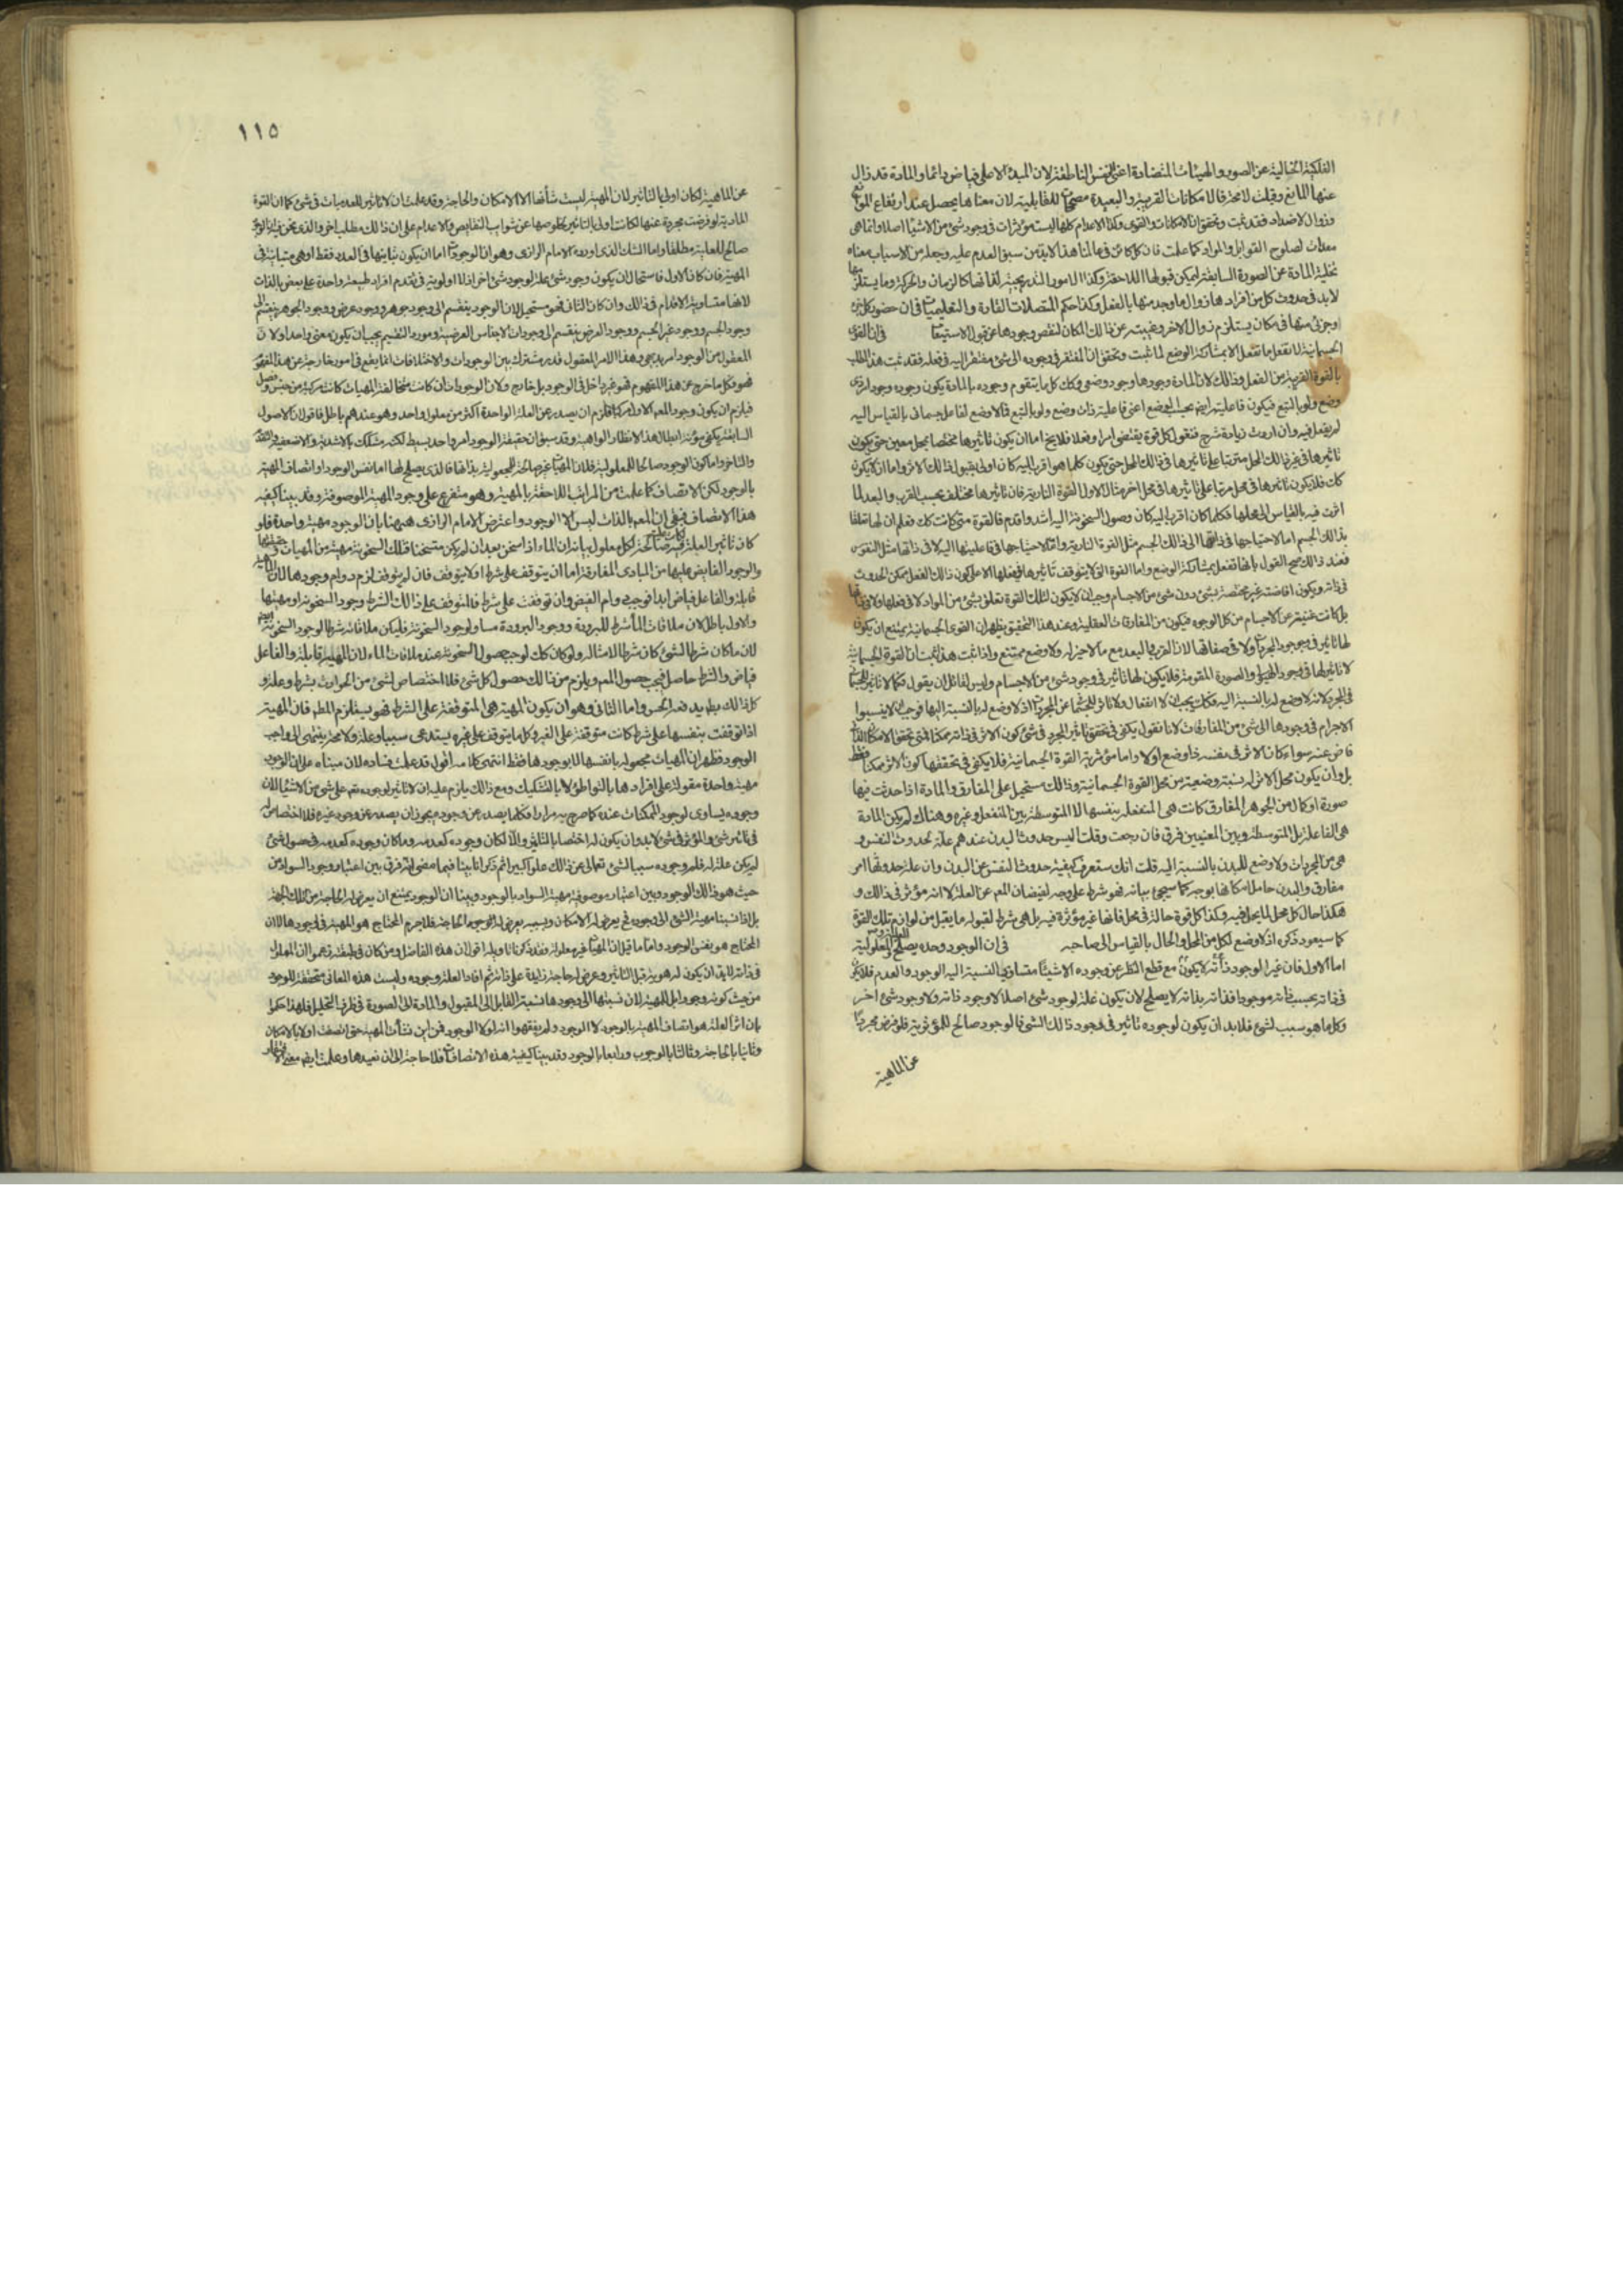 الفلكية الخالية عن الصور والهيئات المتضادة اعنى النفس الناطقة لان المبدء الاعلى فياض دائما والمادة قد زال
عنها المانع وقبلت لا محة فالامكانات القريبة والبعيدة للقابلية لان معناها يحصل عند ارتفاع الموانع
وزوال الاضداد فقد ثبت وتحقق ان الامكانات والقوى وكذا الاعدام كلها ليست مؤثرات فى وجود شئ من الاشيا اصلا وانما هى
معدات لصلوح القوابل والمواد كما علمت فان كل كائن فى عالمنا هذا لابد من سبق العدم عليه وجعله من الاسباب معناه
تخلية المادة عن الصورة السابقة ليمكن قبولها اللاحقة وكذا الامور كالزمان والحركة وما يستلزمها
لابد فى حدوث كل من افرادها زوال ما وجد منها بالفعل وكذا حكم المتصلات القارة والتعليميات فان حضور كل جزء
وجزئى منها فى مكان يستلزم زوال الاخر وغيبته عن ذالك المكان لنقص وجودها عن قبول الاستيعاب فى ان القوى
الجسمانية لا تفعل ما تفعل الا بمشاركة الوضع لما ثبت وتحقق ان المفتقر فى وجوده الى شئ مفتقر اليه فى فعله فقد ثبت هذا المطلب
بالقوة القريبة من الفعل وذالك لان المادة وجودها وجود وضعى وكك كل ما يتقوم وجوده بالمادة يكون وجوده وجود امر ذى
وضع ولو بالتبع فيكون فاعليته ايض بحسب الوضع اعنى فاعلية ذات وضع ولو بالتبع فما لا وضع لفاعل جسمانى بالقياس اليه
لم يفعل فيه وان اردت زيادة شرح فنقول كل قوة يقتضى اثرا وفعلا فلا يخ اما ان يكون تاثيرها مختصا بمحل معين حتى يكون
تاثيرها فى غير ذالك المحل مترتبا على تاثيرها فى ذالك المحل حتى يكون كلما هو اقرب اليه كان اولى بقبول ذالك الاثر واما ان لا يكون
كك فلا يكون تاثيرها فى محل مرتبا على تاثيرها فى محل اخر مثال الاول القوة النارية فان تاثيرها مختلف بحسب القرب والبعد لما
اثرت فيه بالقياس الى محلها فكلما كان اقرب اليه كان وصول السخونة اليه اشد واقدم فالقوة متى كانت كك فعلم ان لها تعلقا
بذالك الجسم اما لاحتياجها فى ذاتها الى ذالك الجسم مثل القوة النارية واما لاحتياجها فى فاعليتها اليه لا فى ذاتها مثل النفوس
فعند ذالك صح القول بانها تفعل بمشاركة الوضع واما القوة التى لا يتوقف تاثيرها
فى ذاته ويكون افاضته غير مختصة بشئ دون شئ من الاجسام وجب ان لا يكون لتلك القوة تعلق بشئ من المواد لا فى فعلها ولا فى ذاتها
بل كانت غنية عن الاجسام من كل الوجوه فيكون من المفارقات العقلية وعند هذا التحقيق يظهر ان القوى الجسمانية يمتنع ان يكون
لها تاثير فى وجود المجردات ولا فى صفاتها لان القرب والبعد مع ما لا حيز له ولا وضع ممتنع واذا ثبت هذا ثبت ان القوة الجسمانية
لا تاثير لها فى وجود الهيولى والصورة المقومة فلا يكون لها تاثير فى وجود شئ من الاجسام وليس لقائل ان يقول فكما لا تاثير للجسمانى
فى المجرد لانه لا وضع له بالنسبة اليه فكك يجب ان لا انفعال ولا تاثر للجسمانى عن المجردات اذ لا وضع له بالنسبة اليها فوجب ان لا ينسبوا
الاجرام فى وجودها الى شئ من المفارقات لانا نقول يكفى فى تحقق تاثير المجرد فى شئ كون الاثر فى ذاته ممكنا فمتى تحقق الامكان
فاض عنه سواء كان الاثر فى نفسه ذا وضع او لا واما مؤثرية القوة الجسمانية فلا يكفى فى تحققها كون الاثر ممكنا فقط
بل وان يكون محل الاثر له نسبة وضعية من محل القوة الجسمانية وذالك مستحيل على المفارق والمادة اذا حدثت فيها
صورة او كمال من الجوهر المفارق كانت هى المنفعلة بنفسها لا المتوسطة بين المنفعل وغيره وهناك لم يكن المادة
هى الفاعلة بل المتوسطة وبين المعنيين فرق فان رجعت وقلت اليس حدوث البدن عندهم علة لحدوث النفس و
هى من المجردات ولا وضع للبدن بالنسبة اليه قلت انك ستعرف كيفية حدوث النفس عن البدن وان علة حدوثها امر
مفارق والبدن حامل امكانها بوجه كما سيجئ بيانه فهو شرط على وجه لفيضان المع عن العلة لا انه مؤثر فى ذالك و
هكذا حال كل محل لما يحل فيه وكذا كل قوة حالة فى محل فانها غير مؤثرة فيه بل هى شرط لقبوله ما يقبل من لوازم تلك القوة
كما سيعود ذكره اذ لا وضع لكل من المحل والحال بالقياس الى صاحبه فى ان الوجود وحده يصلح للعلية والمعلولية
اما الاول فان غير الوجود ذاته لا يكون مع قطع النظر عن وجوده الا شيئا متساوى النسبة اليه الوجود والعدم فلا يكن
فى ذاته بحسب ذاته موجودا فذاته بذاته لا يصلح لان يكون علة لوجود شئ اصلا لا وجود ذاته ولا وجود شئ اخر
وكلما هو سبب لشئ فلابد ان يكون لوجوده تاثير فى وجود ذالك الشئ فالوجود صالح للمؤثرية فلو فرض مجردا
عن الماهية
١١٥
عن الماهية لكان اولى بالتاثير لان المهية ليست شأنها الا الامكان والحاجة وقد علمت ان لا تاثير للعدميات فى شئ كما ان القوة
المادية لو فرضت مجردة عنها لكانت اولى بالتاثير لخلوصها عن شوائب النقايص والاعدام على ان ذالك مطلب اخر والذى نحن فيه ان الوجود
صالح للعلية مطلقا واما الشك الذى اورده الامام الرازى وهو ان الوجودات اما ان يكون تباينها فى العدد فقط او هى متباينة فى
المهية فان كان الاول فاستحال ان يكون وجود شئ علة لوجود شئ اخر اذ لا اولوية فى تقدم افراد طبيعة واحدة على بعض بالذات
لانها متساوية الاقدام فى ذالك وان كان الثانى فهو مستحيل لان الوجود ينقسم الى وجود جوهر ووجود عرض ووجود الجوهر ينقسم الى
وجود الجسم ووجود غير الجسم ووجود العرض ينقسم الى وجودات الاجناس العرضية ومورد التقسيم يجب ان يكون معنى واحدا ولان
المعقول من الوجود امر بديهى وهذا الامر المعقول قدر مشترك بين الوجودات والاختلافات انما يقع فى امور خارجة عن هذا المفهوم
فهو فكل ما خرج عن هذا المفهوم فهو غير داخل فى الوجود بل خارج ولان الوجودات ان كانت متخالفة المهيات كانت مركبة من جنس وفصل
فيلزم ان يكون وجود المع الاول مركبا فلزم ان يصدر عن العلة الواحدة اكثر من معلول واحد وهو عندهم باطل فاقول ان الاصول
السابقة يكفى مؤنة ابطال هذا الانظار الواهية وقد سبق ان حقيقة الوجود امر واحد بسيط لكنه مشكك بالاشدية والاضعف والتقدم
والتاخر واما كون الوجود صالحا للمعلولية فلان المهيات غير صالحة للمجعولية بذاتها فالذى يصلح لها اما نفس الوجود او اتصاف المهية
بالوجود لكن الاتصاف كما علمت من المراتب اللاحقة بالمهية وهو متفرع على وجود المهية الموصوفة وقد بينا كيفية
هذا الاتصاف فبقى ان المع بالذات ليس الا الوجود واعترض الامام الرازى ههنا بان الوجود مهية واحدة فلو
كان تاثير العلة فيه لكل معلول بيانه ان الماء اذا سخن بعد ان لم يكن متسخنا فتلك السخونة مهية من المهيات
والوجود الفايض عليها من المبادى المفارقة اما ان يتوقف على شرط او لا يتوقف فان لم يتوقف لزم دوام وجودها لان المهية
قابلة والفاعل فياض ابدا فوجب دوام الفيض وان توقف على شرط فالمتوقف على ذالك الشرط وجود السخونة او مهيتها
والاول باطل لان ملاقات الماء شرط للبرودة ووجود البرودة مساو لوجود السخونة فليكن ملاقاته شرطا لوجود السخونة ايض
لان ما كان شرطا لشئ كان شرطا لامثاله ولو كان كك لوجب حصول السخونة عند ملاقات الماء لان المهية قابلة والفاعل
فياض والشرط حاصل فيجب حصول المع ويلزم من ذالك حصول كل شئ فلا اختصاص لشئ من الحوادث بشرط وعلة و
كل ذالك بط يدفعه الحس واما الثانى وهو ان يكون المهية هى المتوقفة على الشرط فهو يستلزم المط فان المهية
اذا توقفت بنفسها على شرط كانت متوقفة على الغير وكل ما يتوقف على غيره يستدعى سببا وعلة ولا محة ينتهى الى واجب
الوجود فظهر ان المهيات مجعولة بانفسها لا بوجودها فقط انتهى كلامه اقول قد علمت فساده لان مبناه على ان الوجود
مهية واحدة مقولة على افرادها بالتواطؤ لا بالتشكيك ومع ذالك يلزم عليه ان لا تاثير لوجوده تع على شئ من الاشيا لان
وجوده يساوى لوجود الممكنات عنده كما صرح به مرارا فكلما يصدر عن وجوده يجوز ان يصدر عن وجود غيره فلا اختصاص له
فى تاثير شئ والمؤثر فى شئ لابد وان يكون له اختصاص بالتاثير والا لكان وجوده كعدمه وما كان وجوده كعدمه فى حصول شئ
لم يكن علة له فلم وجوده سببا لشئ تعالى عن ذالك علوا كبيرا ثم ذكر انا بينا فيما مضى انه فرق بين اعتبار وجود السواد من
حيث هو ذالك الوجود وبين اعتبار موصوفية مهية السواد بالوجود وبينا ان الوجود يمتنع ان يعرض له الحاجة من تلك الجهة
بل اذا نسبنا مهية الشئ الى وجوده فح يعرض له الامكان وبسببه يعرض له الوجود الحاجة فلا جرم المحتاج هو المهية فى وجودها لا ان
المحتاج هو نفس الوجود واما ما قيل ان المهيات غير معلولة فقد ذكرنا تاويله اقول ان هذا الفاضل ومن كان فى طبقته زعموا ان المعلول
فى ذاته لابد ان يكون له هوية قبل التاثير وعرض له حاجة زايدة على ذاته ثم افاد العلة وجوده وليست هذه المعانى متحققة للوجود
من حيث كونه وجودا بل للمهية لان نسبتها الى وجودها نسبة القابل الى المقبول والمادة الى الصورة فى ظرف التحليل فلهذا حكموا
بان اثر العلة هو اتصاف المهية بالوجود لا الوجود ولم يتفقهوا انه لولا الوجود فمن اين نشأت المهية حتى اتصفت اولا بالامكان
وثانيا بالحاجة وثالثا بالوجوب ورابعا بالوجود وقد بينا كيفية هذه الاتصافات فلا حاجة الى ان نعيدها وعلمت ايض معنى الافتقار